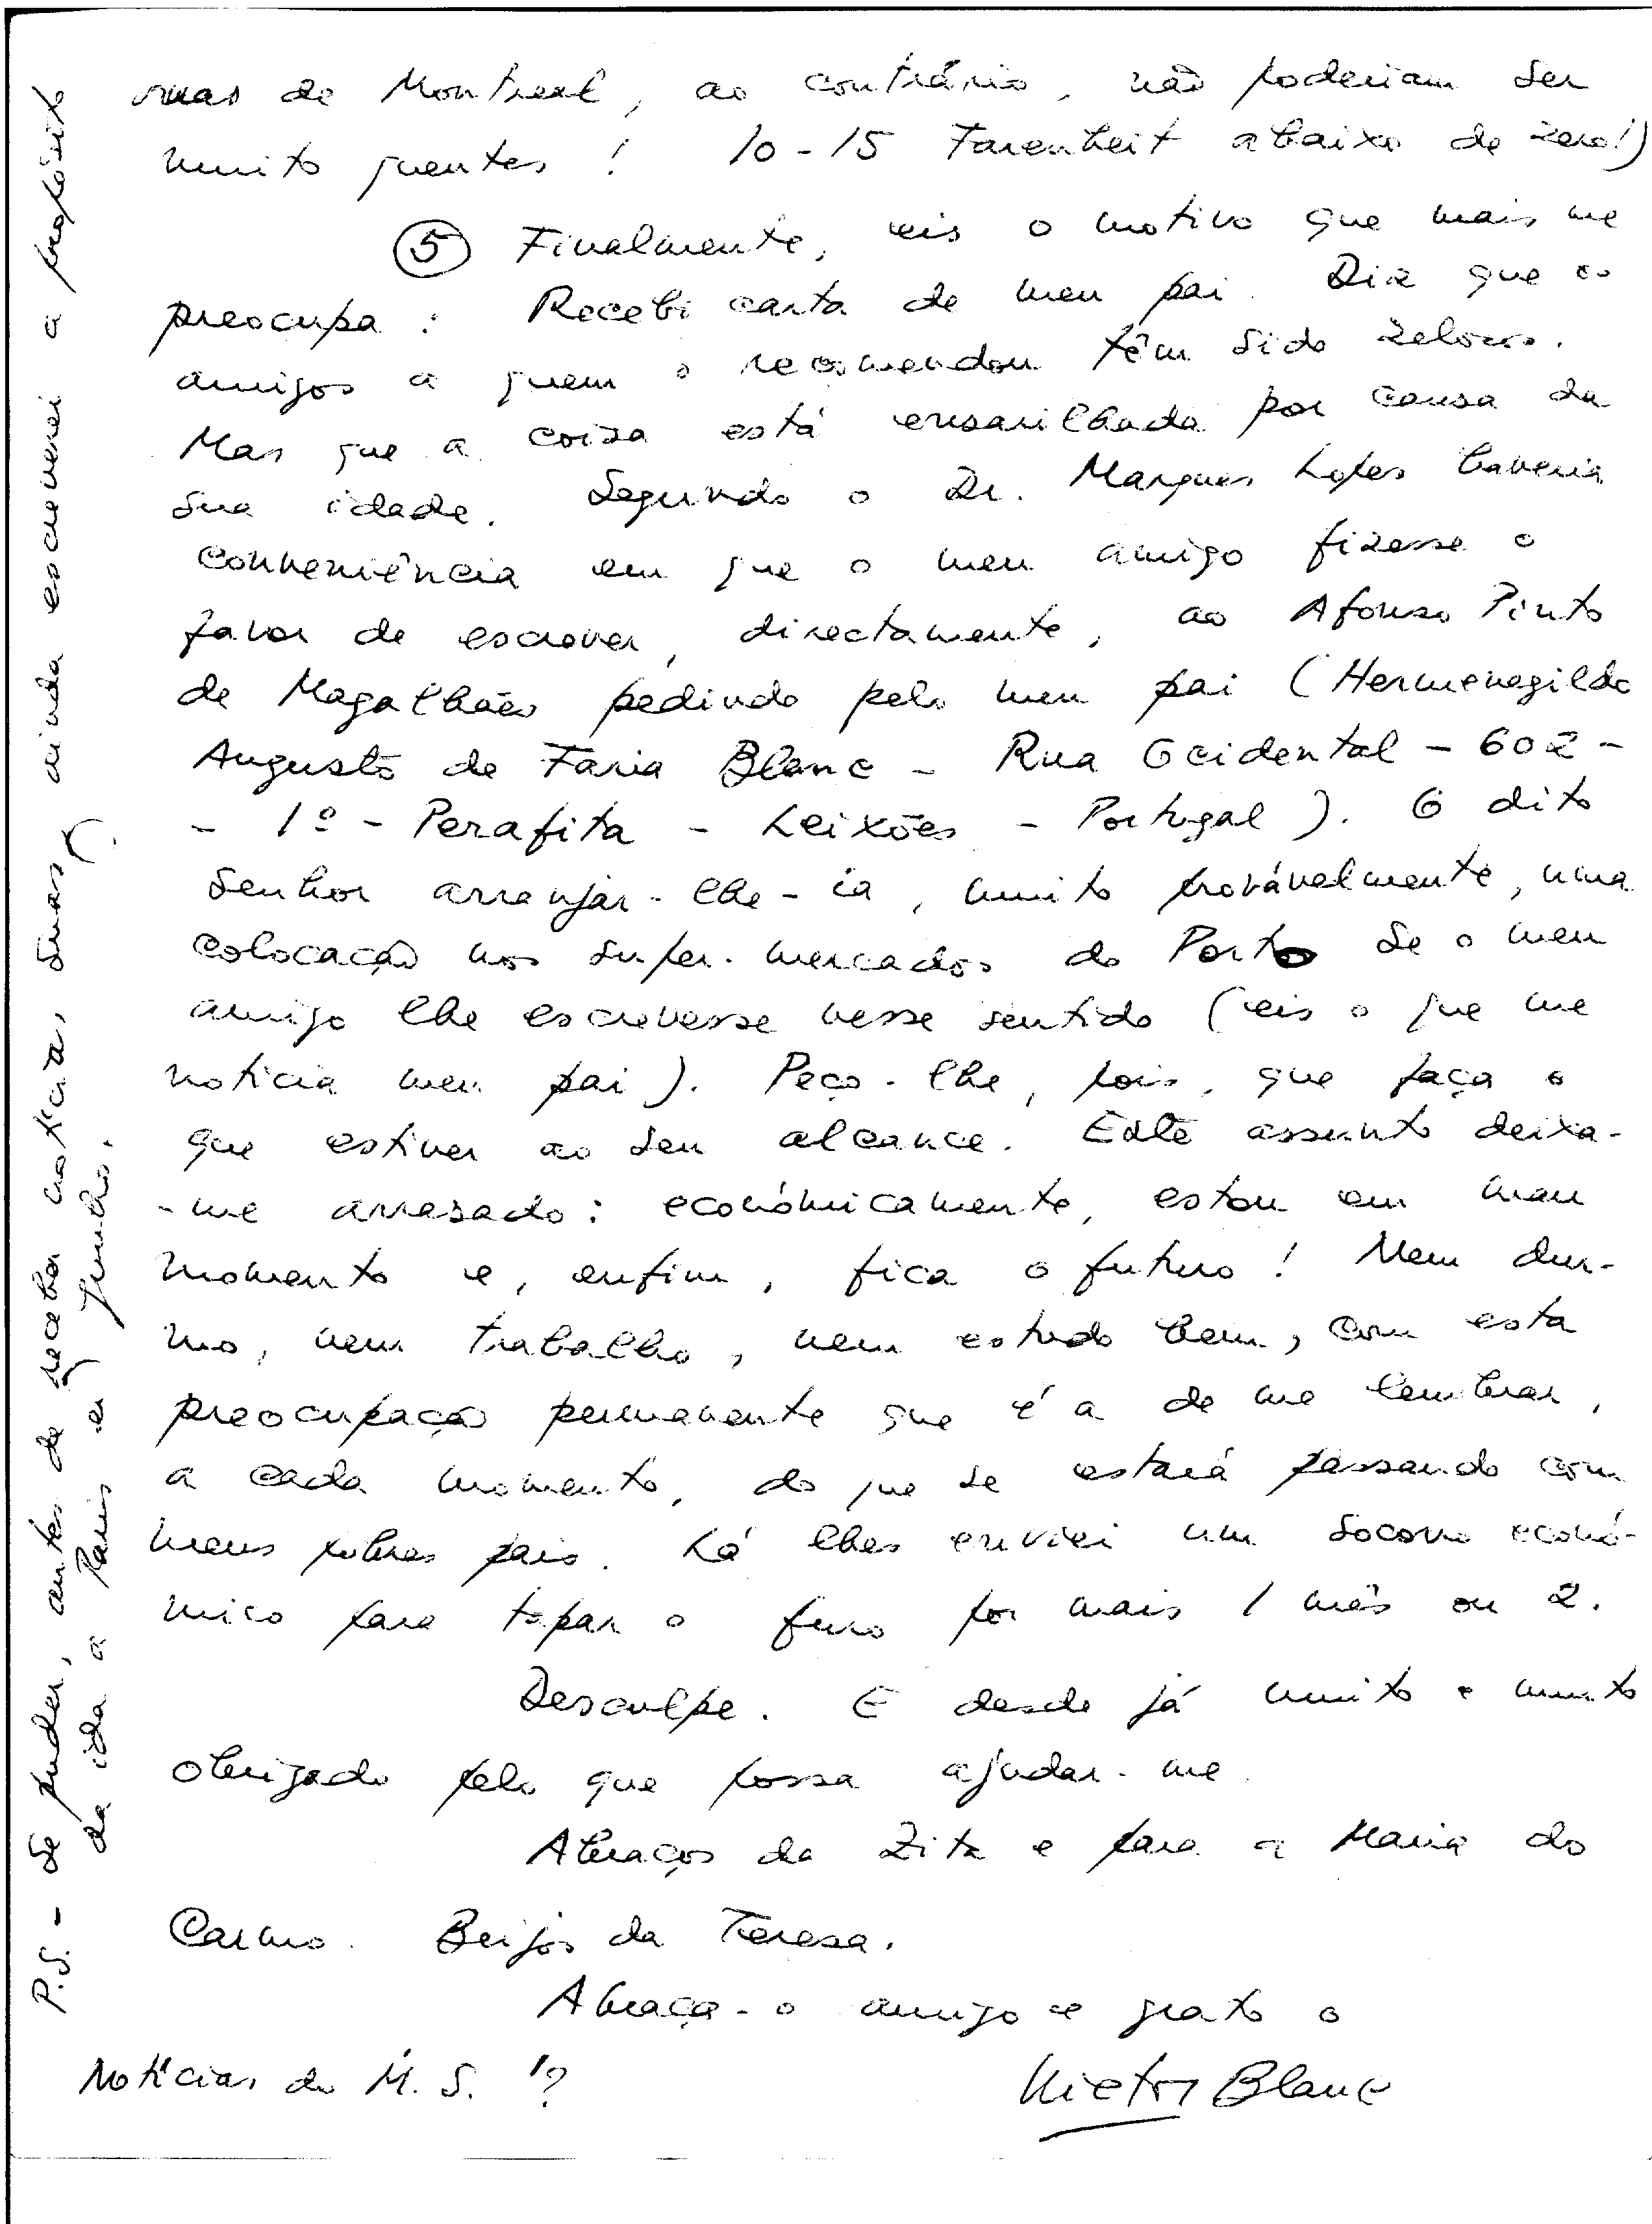 ruas de Montreal, ao contrário, não poderiam ser
muito quentes! 10-15 Farenheit abaixo de zero!)
(5) Finalmente, eis o motivo que mais me
preocupa: Recebi carta de meu pai. Diz que os
amigos a quem o recomendou têm sido zelosos.
Mas que a coisa está ensarilhada por causa da
sua idade. Segundo o Dr. Marques Lopes haveria
conveniência em que o meu amigo fizesse o
favor de escrever, directamente, ao Afonso Pinto
de Magalhães pedindo pelo meu pai (Hermenegildo
Augusto de Faria Blanc - Rua Ocidental - 602 -
- 1º - Perafita - Leixões - Portugal). O dito
Senhor arranjar-lhe-ia, muito provàvelmente, uma
colocação nos super-mercados do Porto se o meu
amigo lhe escrevesse nesse sentido (eis o que me
noticia meu pai). Peço-lhe, pois, que faça o
que estiver ao seu alcance. Este assunto deixa-
-me arrasado: econòmicamente, estou em mau
momento e, enfim, fica o futuro! Nem dur-
mo, nem trabalho, nem estudo bem, com esta
preocupação permanente que é a de me lembrar,
a cada momento, do que se estará passando com
meus pobres pais. Lá lhes enviei um socorro econó-
mico para tapar o furo por mais 1 mês ou 2.
Desculpe. E desde já muito e muito
obrigado pelo que possa ajudar-me.
Abraços da Zita e para a Maria do
Carmo. Beijos da Teresa.
Abraça-o amigo e grato o
Victor Blanc
Notícias do M. S. ?
P.S. - Se puder, antes de receber notícia, suas, ainda escreverei a propósito
da ida a Paris em Junho.